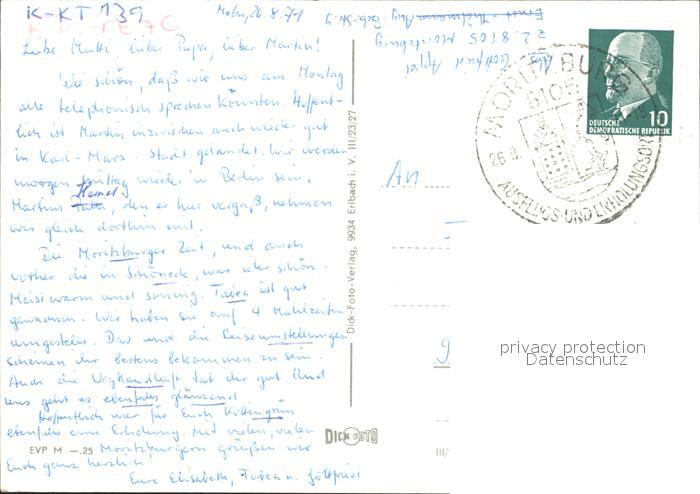 K-KT 139
Mobu, 26.8.71
Liebe Mutti, lieber Papa, lieber Martin!
Wie schön, daß wir uns am Montag
alle telephonisch sprechen konnten. Hoffent-
lich ist Martin inzwischen auch wieder gut
in Karl-Marx-Stadt gelandet. Wir werden
morgen mittag wieder in Berlin sein.
Martins Hemd, den er hier vergaß, nehmen
wir gleich dorthin mit.
Die Moritzburger Zeit, und auch
vorher die in Schöneck, war sehr schön.
Meist warm und sonnig. Tabea ist gut
gewachsen. Wir haben sie auf 4 Mahlzeiten
umgestellt. Das und die Reiseumstellungen
scheinen ihr bestens bekommen zu sein.
Auch die Vogtlandluft tat ihr gut. Und
uns geht es ebenfalls glänzend.
Hoffentlich war für Euch
ebenfalls eine Erholung. Mit vielen, vielen
Moritzburgern grüßen wir
Euch ganz herzlich!
Eure Elisabeth, Tabea u. Gottfried
EVP M —.25
Dick-Foto-Verlag, 9934 Erlbach i. V. III/23/27
DICK FOTO
III/
Abs. Gottfried Appel
Z. Z. 8105 Moritzburg
Ernst-Thälmann
MORITZBURG
8105
26.8.
AUSFLUGS- UND ERHOLUNGSORT
10
DEUTSCHE
DEMOKRATISCHE REPUBLIK
An
privacy protection
Datenschutz